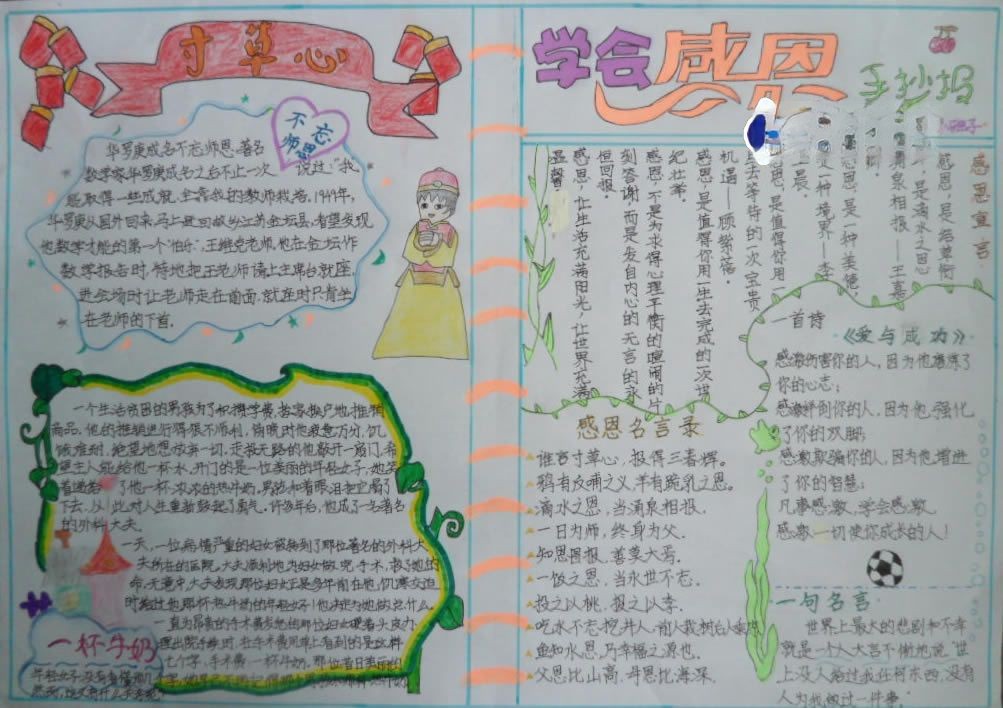 寸草心
不忘
师恩
华罗庚成名不忘师恩,著名
数学家华罗庚成名之后不止一次 说过:"我
能取得一些成就,全靠我的教师栽培。1949年,
华罗庚从国外回来,马上赶回故乡江苏金坛县,看望发现
他数学才能的第一个"伯乐"王维克老师,他在金坛作
数学报告时,特地把王老师请上主席台就座,
进会场时让老师走在前面,就座时只肯坐
在老师的下首。
一个生活贫困的男孩为了积攒学费,挨家挨户地推销
商品。他的推销进行得很不顺利,傍晚时他疲惫万分,饥
饿难耐,绝望地想放弃一切。走投无路的他敲开一扇门,希
望主人能给他一杯水,开门的是一位美丽的年轻女子,她笑
着递给 了他一杯浓浓的热牛奶,男孩和着眼泪把它喝了
下去,从 此对人生重新鼓起了勇气。许多年后,他成了一名著名
的外科大夫。
一天,一位病情严重的妇女被转到了那位著名的外科大
夫所在的医院。大夫顺利地为妇女做完手术,救了她的
命。无意中,大夫发现那位妇女正是多年前在他饥寒交迫
时给过他那杯热牛奶的年轻女子!他决定为她做点什么。
一直为昂贵的手术费发愁的那位妇女硬着头皮办
理出院手续时,在手术费用单上看到的是这样
七个字:手术费:一杯牛奶。那位昔日美丽的
一杯牛奶
年轻女子没有看懂那几个字,她早已不再记得
学会感恩
手抄报
感恩宣言
感恩,是结草衔
环,是滴水之恩
涌泉相报。——王嘉
感恩,是一种美德,
是一种境界——李
上晨。
感恩,是值得你用一
生去等待的一次宝贵
机遇——顾繁蓓。
感恩,是值得你用一生去完成的一次世
纪壮举。
感恩,不是为求得心理平衡的喧闹的片
刻答谢,而是发自内心的无言的永
恒回报。
感恩,让生活充满阳光,让世界充满
温馨。
一首诗
《爱与成功》
感激伤害你的人,因为他磨炼了
你的心志;
感激绊倒你的人,因为他强化
了你的双脚;
感激欺骗你的人,因为他增进
了你的智慧;
凡事感激,学会感激,
感激一切使你成长的人!
感恩名言录
谁言寸草心,报得三春辉。
鸦有反哺之义,羊有跪乳之恩。
滴水之恩,当涌泉相报。
一日为师,终身为父。
知恩图报,善莫大焉。
一饭之恩,当永世不忘。
投之以桃,报之以李。
吃水不忘挖井人,前人栽树后人乘凉
鱼知水恩,乃幸福之源也。
父恩比山高,母恩比海深。
一句名言
世界上最大的悲剧和不幸
就是一个人大言不惭地说"世
上没人给过我任何东西,没有
人为我做过一件事"